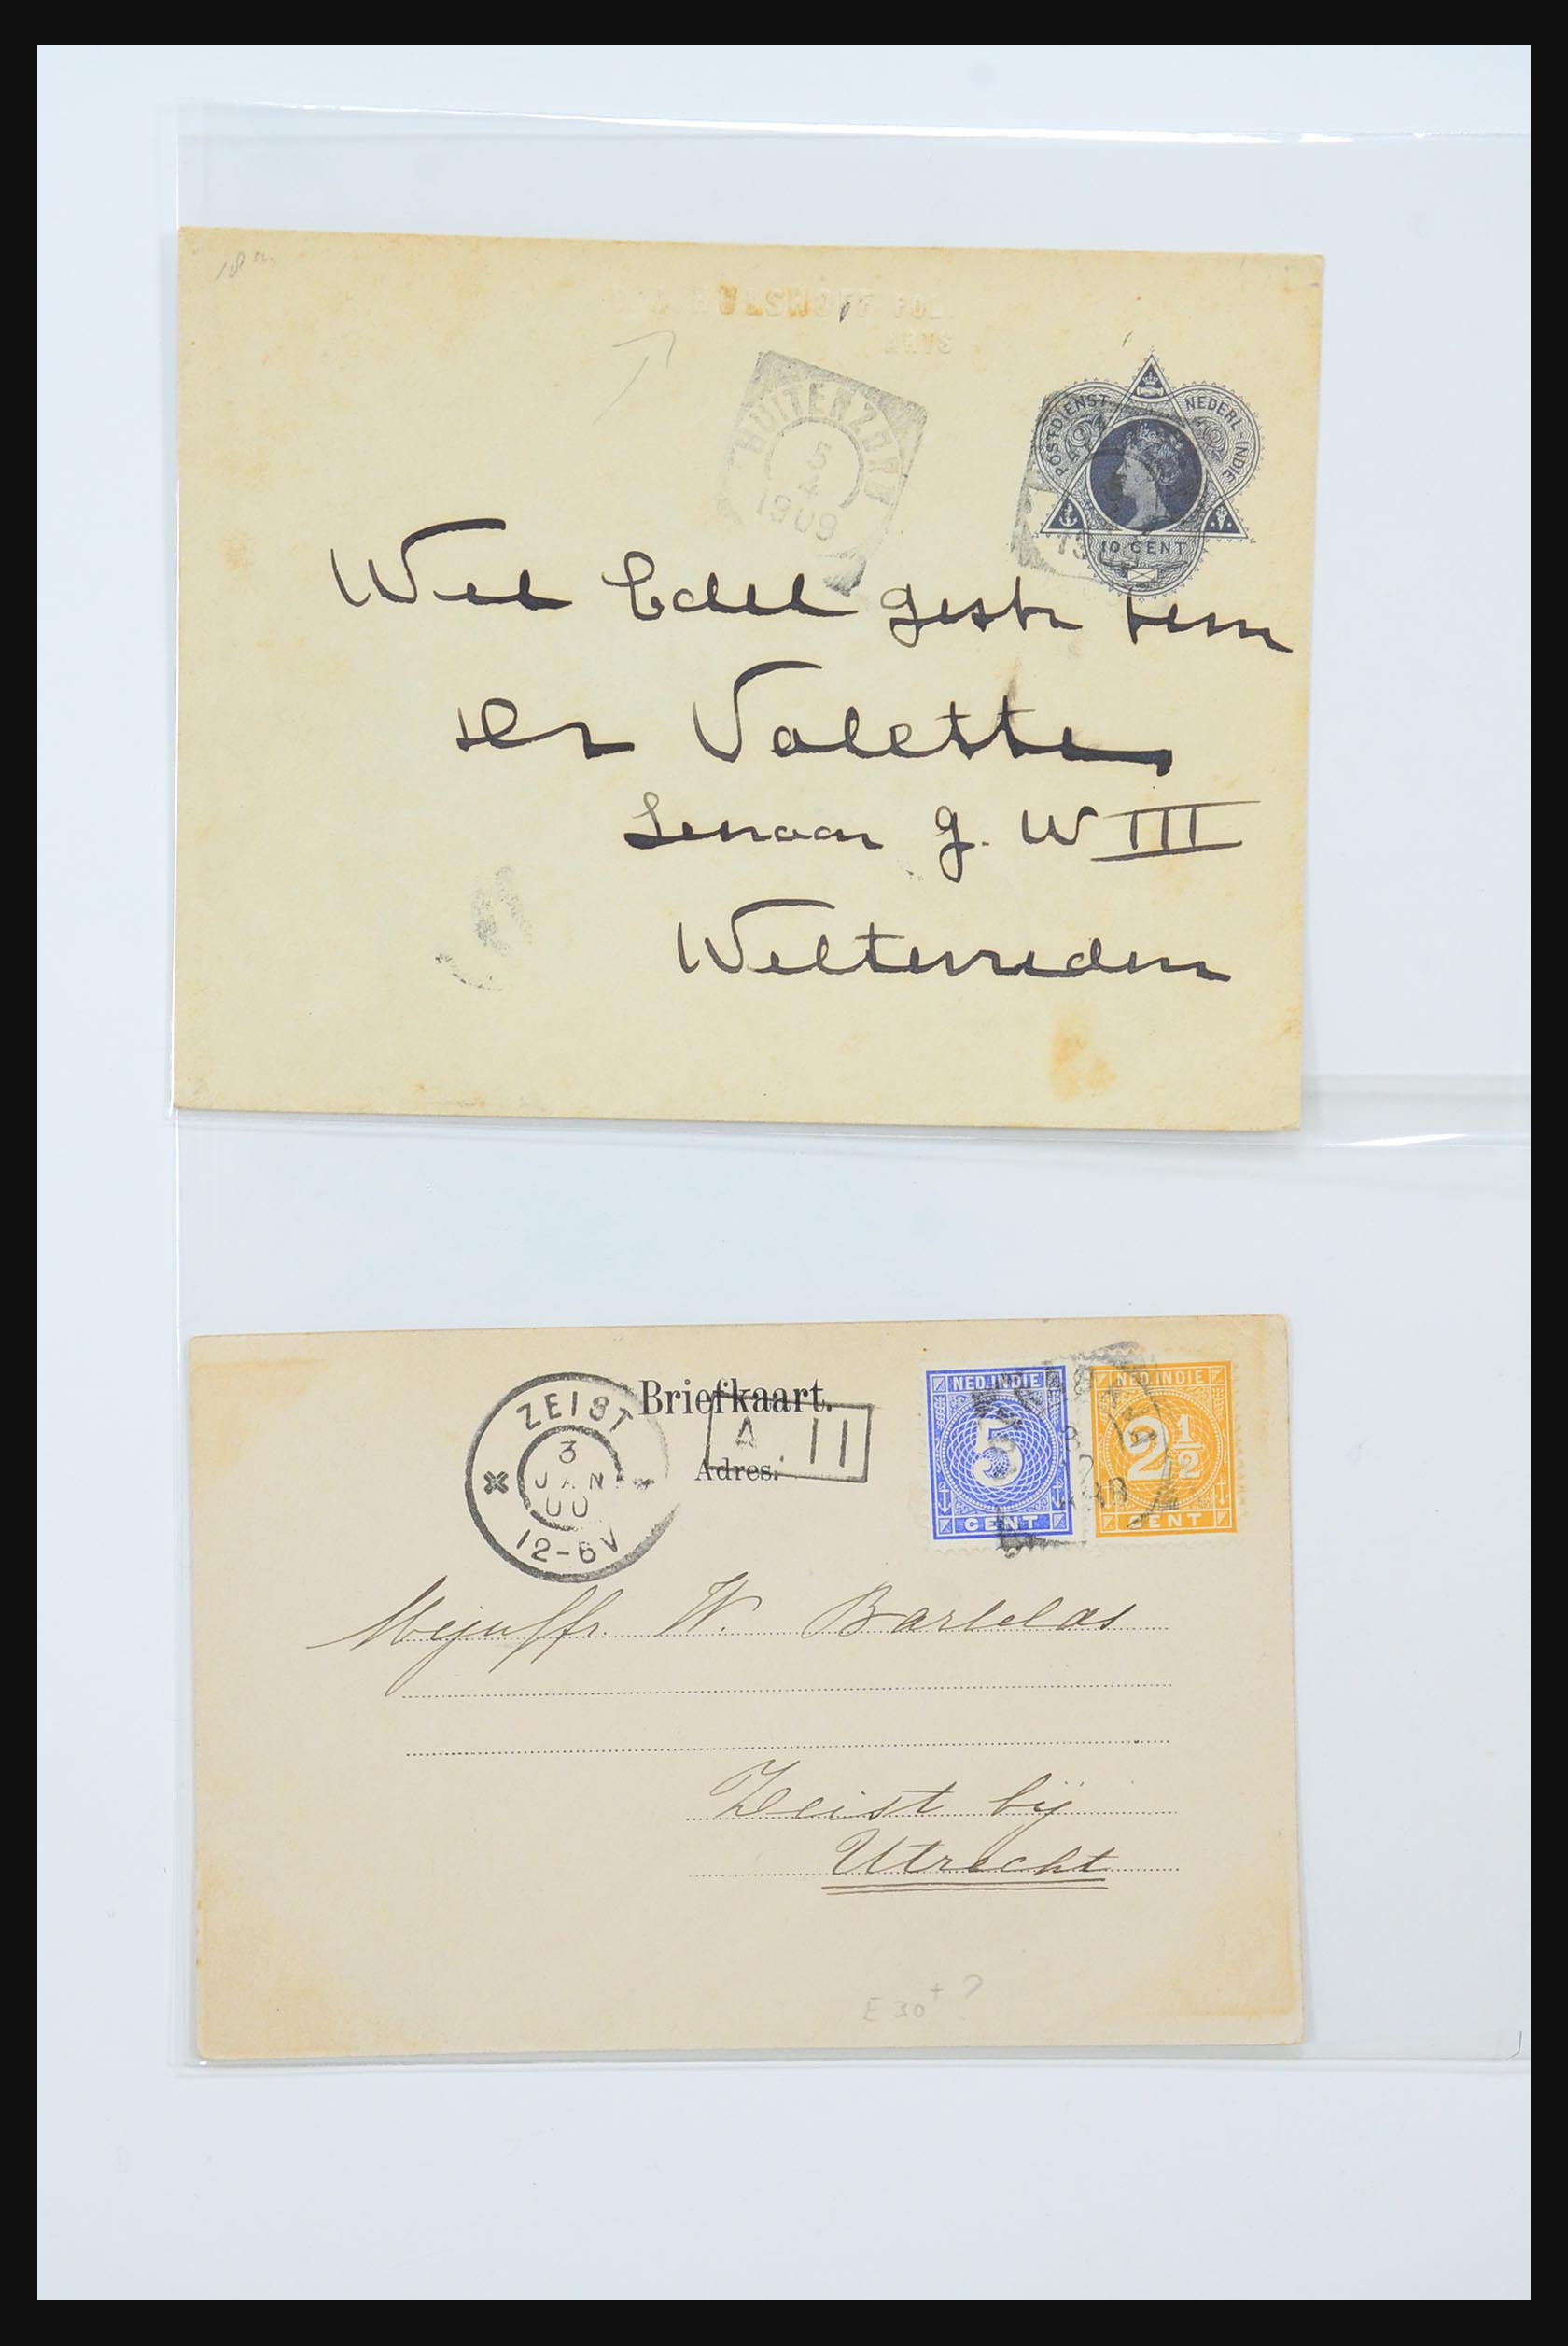 HULSHOFF POL
ARTS
BUITENZORG
5
4
1909
POSTDIENST NEDERL-INDIE
10 CENT
Wel Edel gestr heer
Valette
Lenaar g. W III
Weltevreden
Briefkaart.
Adres.
ZEIST
3
JAN
00
12-6V
A. II
NED. INDIE
5
CENT
NED. INDIE
2 1/2
CENT
Mejuffr. W. Bartelds
Zeist bij
Utrecht
E 30 + ?